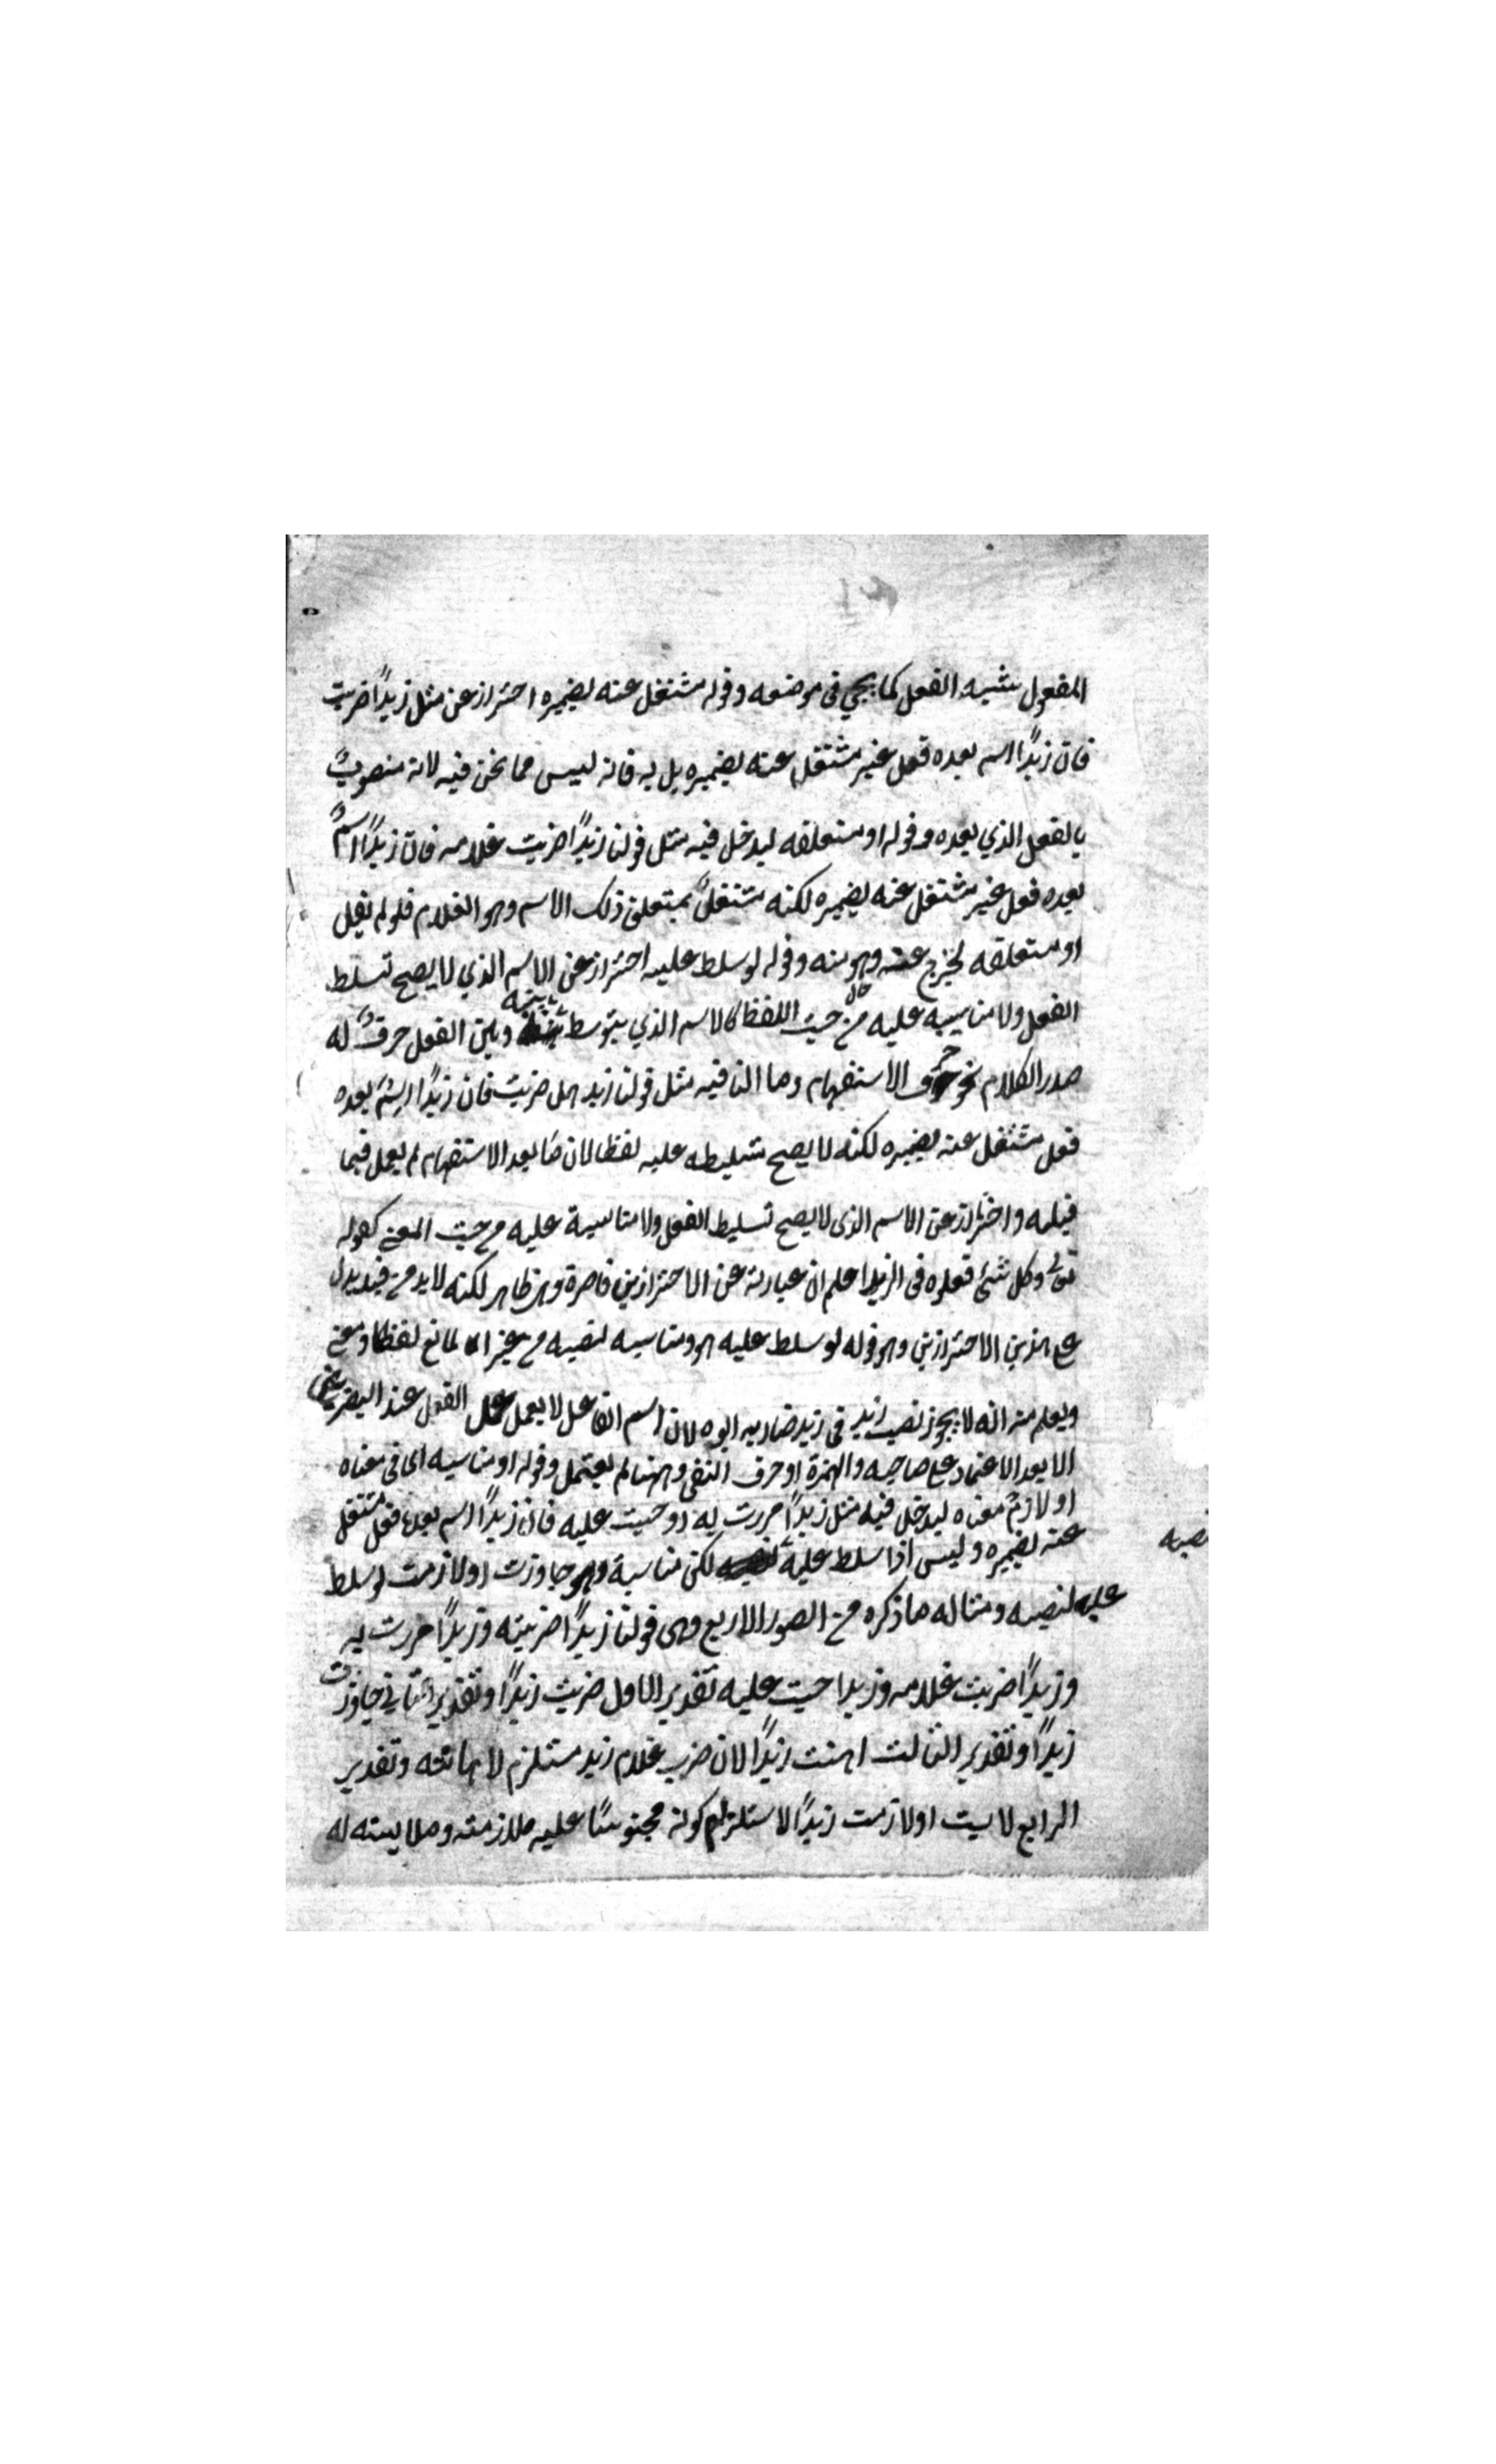 المفعول شبه الفعل كما يجي في موضعه وقوله مشتغل عنه بضميره احتراز عن مثل زيدًا ضربت
فان زيدًا اسم بعده فعل غير مشتغل عنه بضميره بل به فانه ليس مما نحن فيه لانه منصوبٌ
بالفعل الذي بعده وقوله او متعلقه ليدخل فيه مثل قولنا زيدًا ضربت غلامه فان زيدًا اسمٌ
بعده فعل غير مشتغل عنه بضميره لكنه مشتغلٌ بمتعلق ذلك الاسم وهو الغلام فلو لم يقل
او متعلقه لخرج عنه وهو منه وقوله لو سلط عليه احتراز عن الاسم الذي لا يصح تسلط
الفعل ولا مناسبه عليه من حيث اللفظ كالاسم الذي يتوسط بينه وبين الفعل حرفٌ له
صدر الكلام نحو حروف الاستفهام وما النافيه مثل قولنا زيد هل ضربت فان زيدًا اسمٌ بعده
فعل مشتغل عنه بضميره لكنه لا يصح تسليطه عليه لفظا لان ما بعد الاستفهام لم يعمل فيما
قبله واحتراز عن الاسم الذي لا يصح تسليط الفعل ولا مناسبة عليه من حيث المعنى كقوله
تعالى وكل شئ فعلوه في الزبر اعلم ان عبارته عن الاحترازين قاصرة وهو ظاهر لكنه لابد من قيد يدل
على هذين الاحترازين وهو قوله لو سلط عليه هو ومناسبه لنصبه من غير مانع لفظا ومعنى
ويعلم منه انه لا يجوز نصب زيد في زيد ضاربه ابوه لان اسم الفاعل لا يعمل عمل الفعل عند البصريين
الا بعد الاعتماد على صاحبه والهمزة او حرف النفي وههنا لم يعتمد وقوله او مناسبه اى في معناه
او لازمٌ معناه ليدخل فيه مثل زيدًا مررت به او حبست عليه فان زيدًا اسم بعده فعل مشتغل
عنه بضميره وليس اذا سلط عليه لكن مناسبة وهو جاوزت او لازمت لو سلط
نصبه
عليه لنصبه ومثاله ما ذكره من الصور الاربع وهى قولنا زيدًا ضربته وزيدًا مررت به
وزيدًا ضربت غلامه وزيدا حبست عليه تقدير الاول ضربت زيدًا وتقدير الثاني جاوزت
زيدًا وتقدير الثالث اهنت زيدًا لان ضرب غلام زيد مستلزم لاهانته وتقدير
الرابع لابست او لازمت زيدًا لاستلزام كونه محبوسًا عليه ملازمته وملابسته له